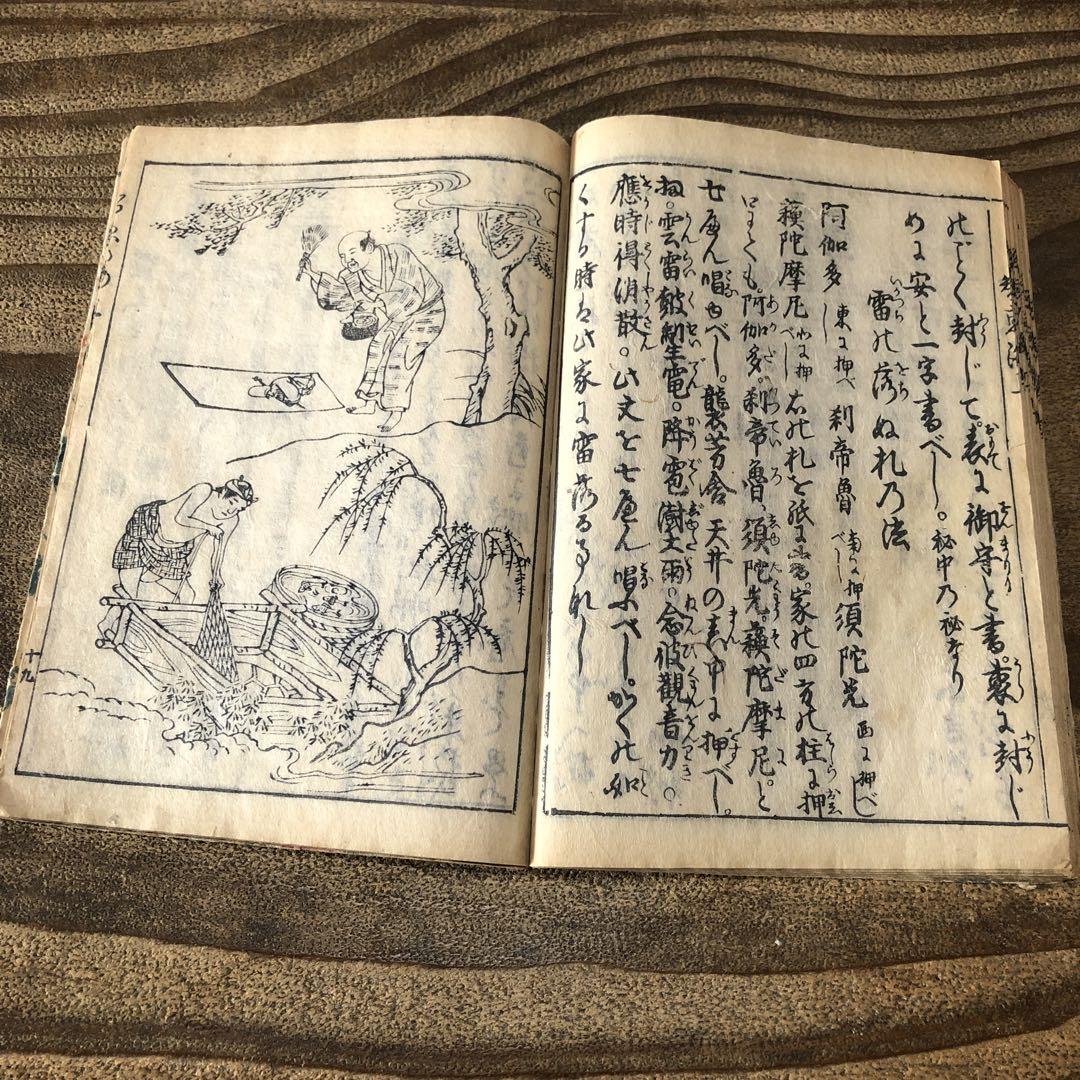 のごとく封じて。表に御守と書。裏に封じ
めに安と一字書べし。秘中の秘なり
雷の落ぬ札の法
阿伽多 東に押べし 刹帝魯 南に押べし 須陀光 西に押べし
蘓陀摩尼 北に押べし 右の札を紙に書。家の四方の柱に押
口にても。阿伽多。刹帝魯、須陀光。蘓陀摩尼。と
七へん唱ゆべし。襲芳舎 天井の真中に押べし。
雲雷皷掣電。降雹澍大雨。念彼観音力。
應時得消散。此文を七へん唱ふべし。かくの如
くする時は此家に雷落る事なし
十九